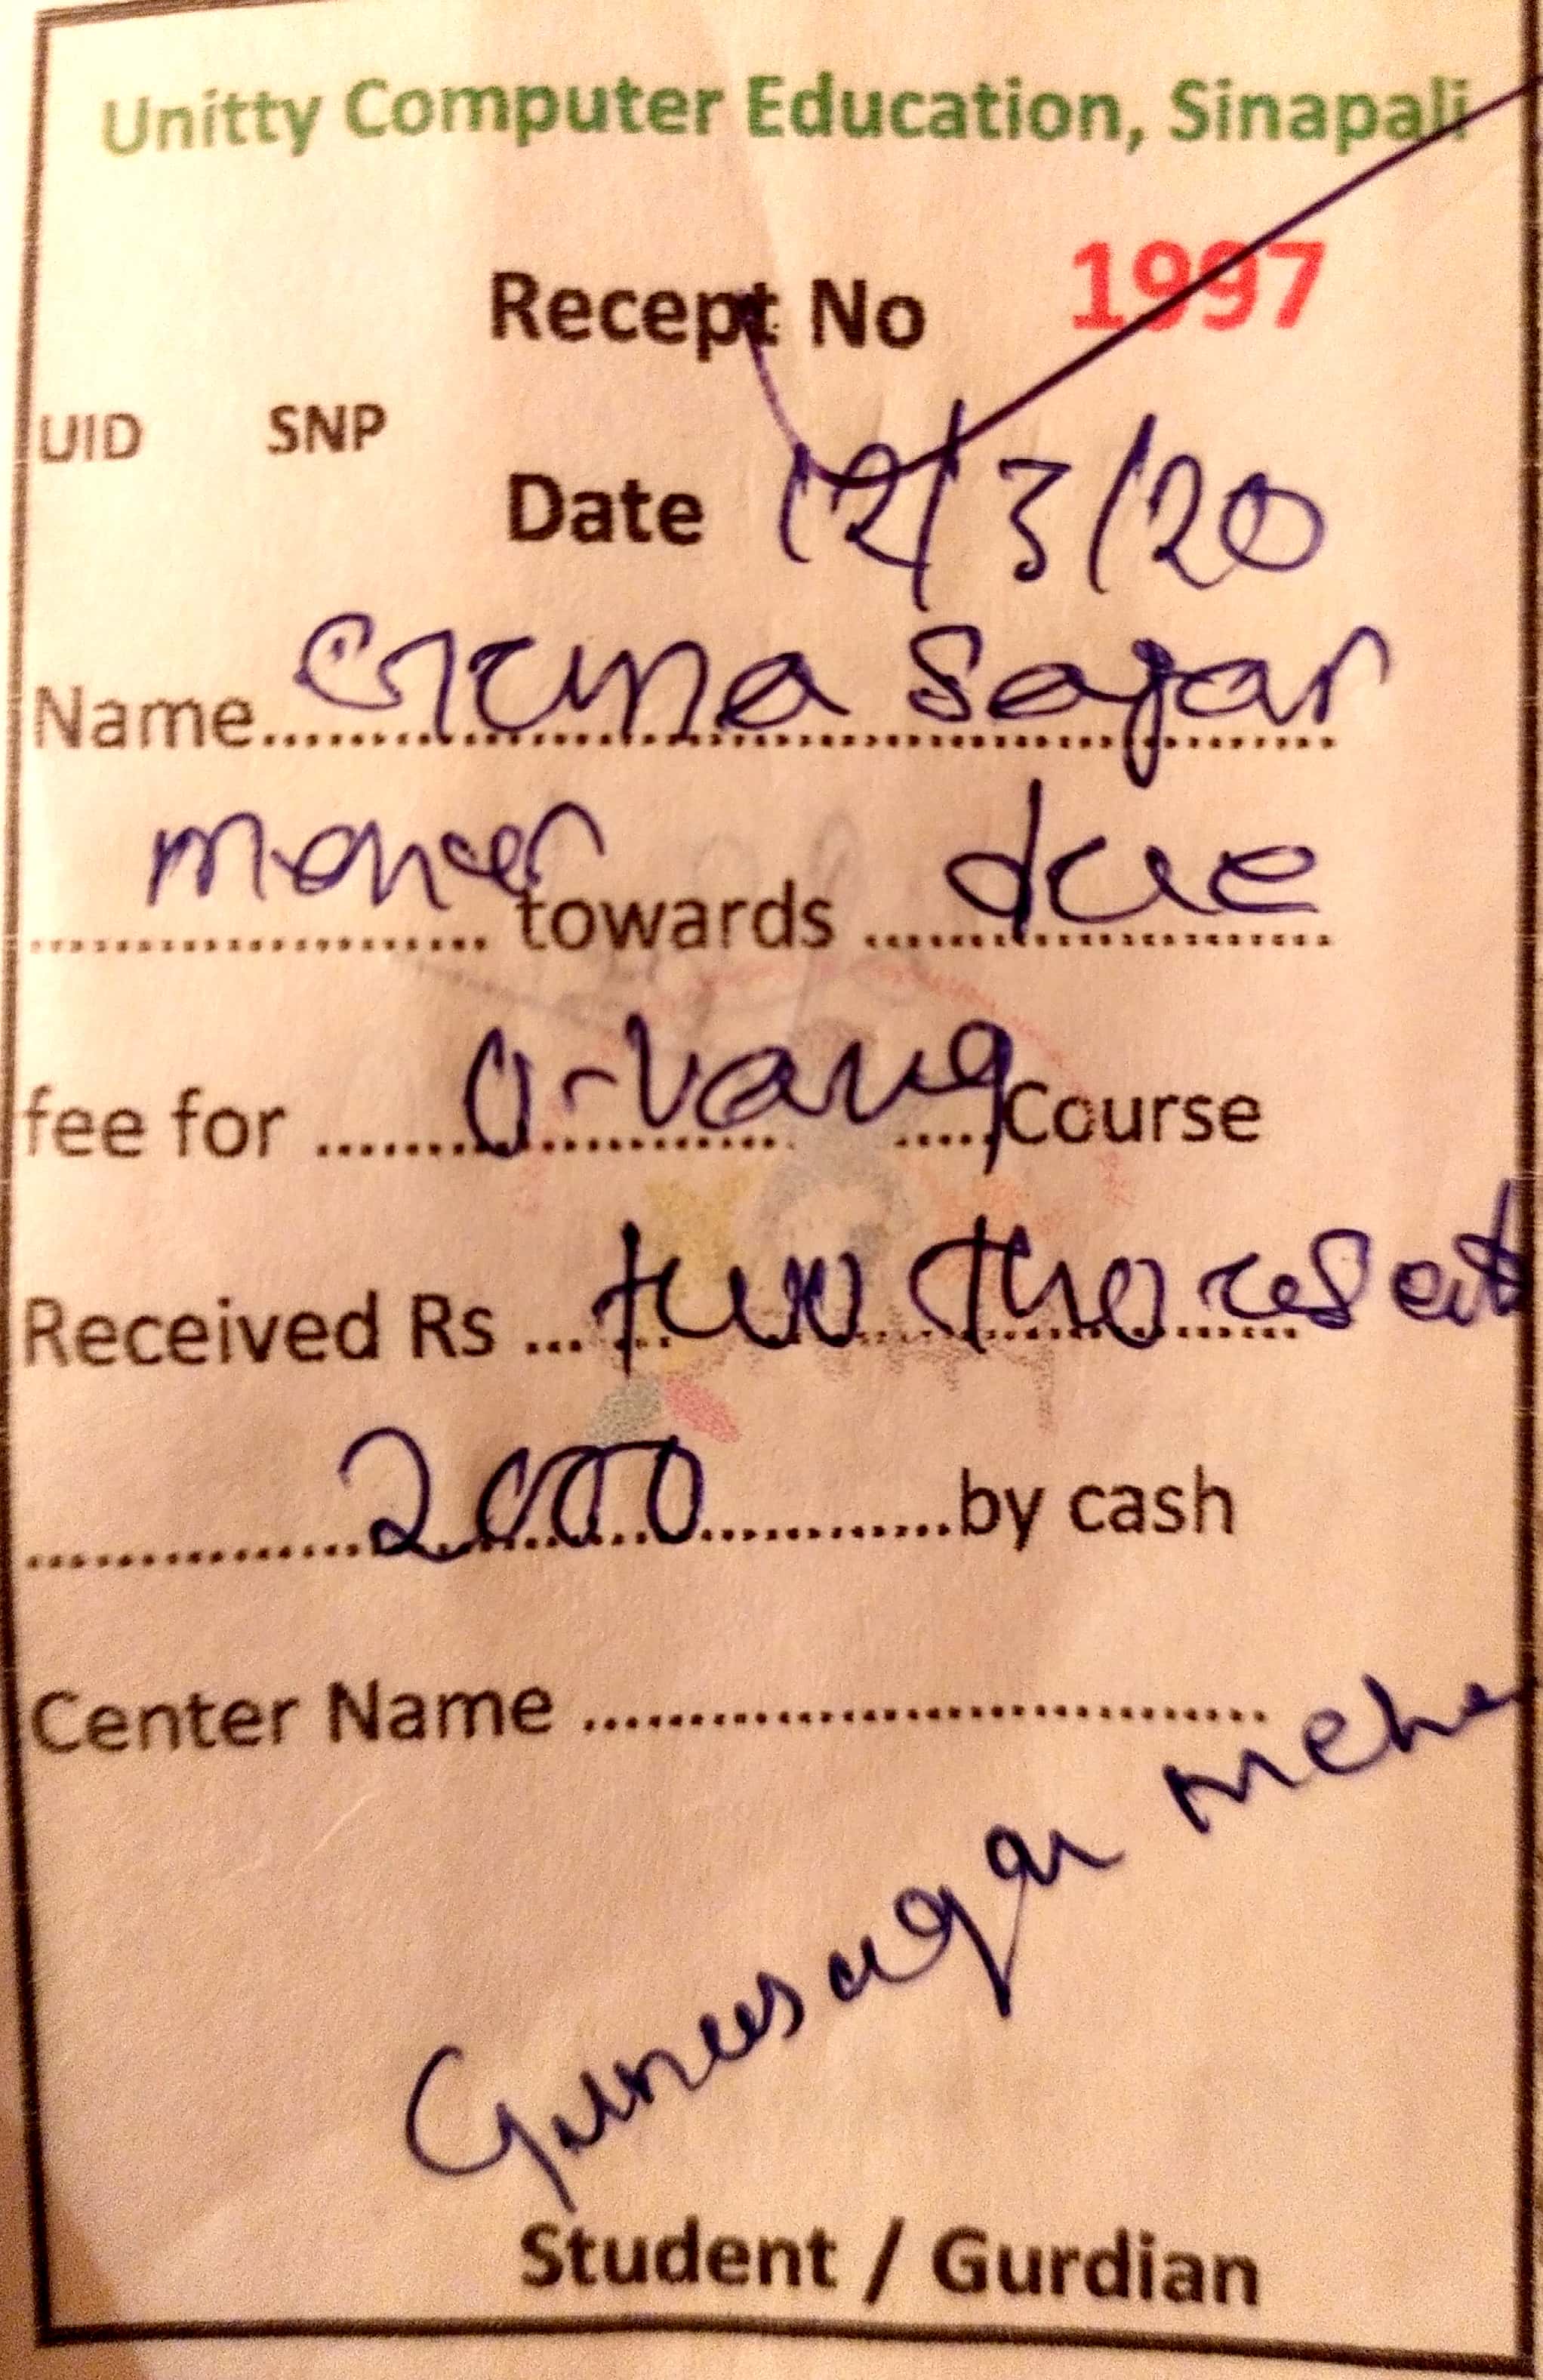 Unitty Computer Education, Sinapali
Recept No 1997
UID SNP
Date 12/3/20
Name Guna Sagar
Meher towards due
fee for Course
Received Rs two thousand
2000 by cash
Center Name
Gunasagar Meher
Student / Gurdian